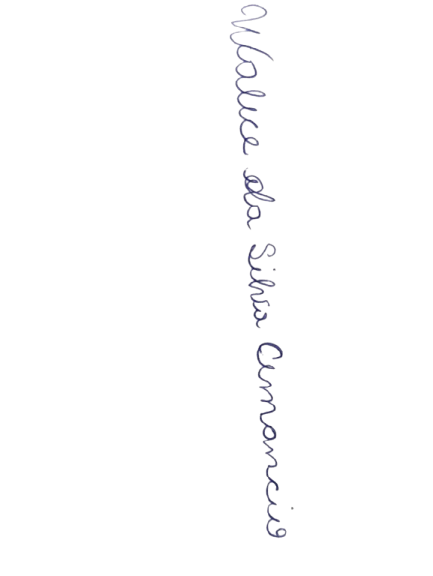 Waluce da Silva Amancio